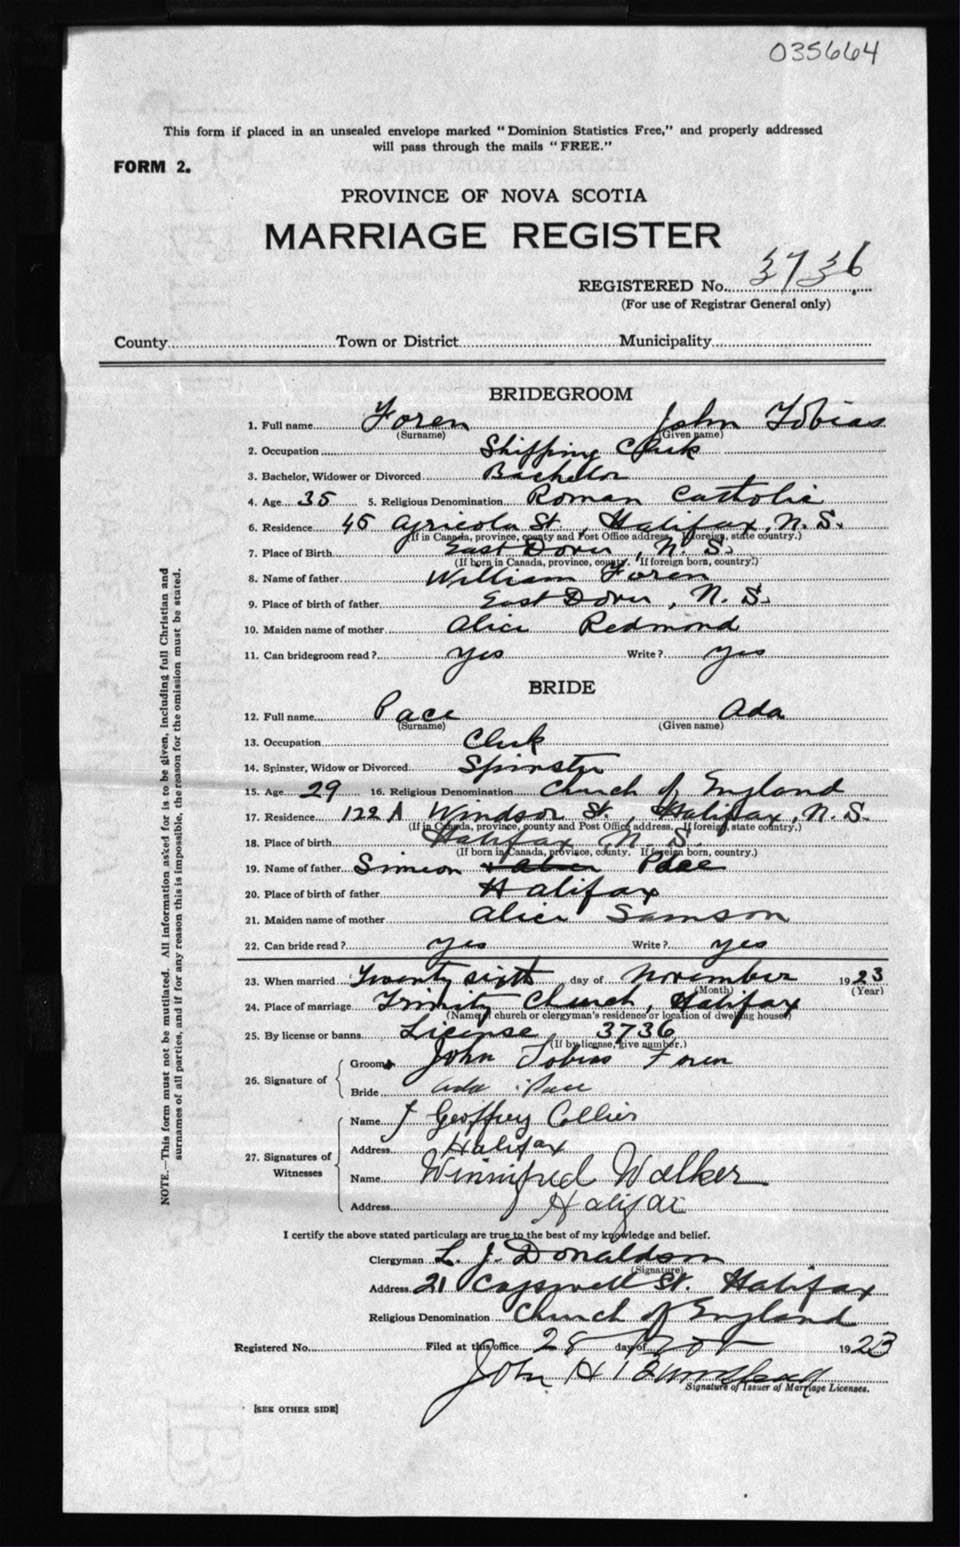 035664
This form if placed in an unsealed envelope marked "Dominion Statistics Free," and properly addressed
will pass through the mails "FREE."
FORM 2.
PROVINCE OF NOVA SCOTIA
MARRIAGE REGISTER
REGISTERED No. 3736
(For use of Registrar General only)
County Town or District Municipality
BRIDEGROOM
1. Full name Foren John Tobias
(Surname) (Given name)
2. Occupation Shipping Clerk
3. Bachelor, Widower or Divorced Bachelor
4. Age 35 5. Religious Denomination Roman Catholic
6. Residence 45 Agricola St., Halifax, N.S.
(If in Canada, province, county and Post Office address. If foreign, state country.)
7. Place of Birth East Dover, N.S.
(If born in Canada, province, county. If foreign born, country.)
8. Name of father William Foren
9. Place of birth of father East Dover, N.S.
10. Maiden name of mother Alice Redmond
11. Can bridegroom read? yes Write? yes
BRIDE
12. Full name Pace Ada
(Surname) (Given name)
13. Occupation Clerk
14. Spinster, Widow or Divorced Spinster
15. Age 29 16. Religious Denomination Church of England
17. Residence 122 A Windsor St., Halifax, N.S.
(If in Canada, province, county and Post Office address. If foreign, state country.)
18. Place of birth Halifax, N.S.
(If born in Canada, province, county. If foreign born, country.)
19. Name of father Simeon Pace
20. Place of birth of father Halifax
21. Maiden name of mother Alice Samson
22. Can bride read? yes Write? yes
23. When married Twenty sixth day of November 1923
(Month) (Year)
24. Place of marriage Trinity Church, Halifax
(Name of church or clergyman's residence or location of dwelling house)
25. By license or banns License 3736
(If by license, give number.)
26. Signature of
Groom John Tobias Foren
Bride Ada Pace
27. Signatures of Witnesses
Name J Geoffrey Collier
Address Halifax
Name Winnifred Walker
Address Halifax
I certify the above stated particulars are true to the best of my knowledge and belief.
Clergyman L. J. Donaldson
(Signature)
Address 21 Cogswell St. Halifax
Religious Denomination Church of England
Registered No. Filed at this office 28 day of Nov 1923
John H
Signature of Issuer of Marriage Licenses.
[SEE OTHER SIDE]
NOTE.—This form must not be mutilated. All information asked for is to be given, including full Christian and
surnames of all parties, and if for any reason this is impossible, the reason for the omission must be stated.